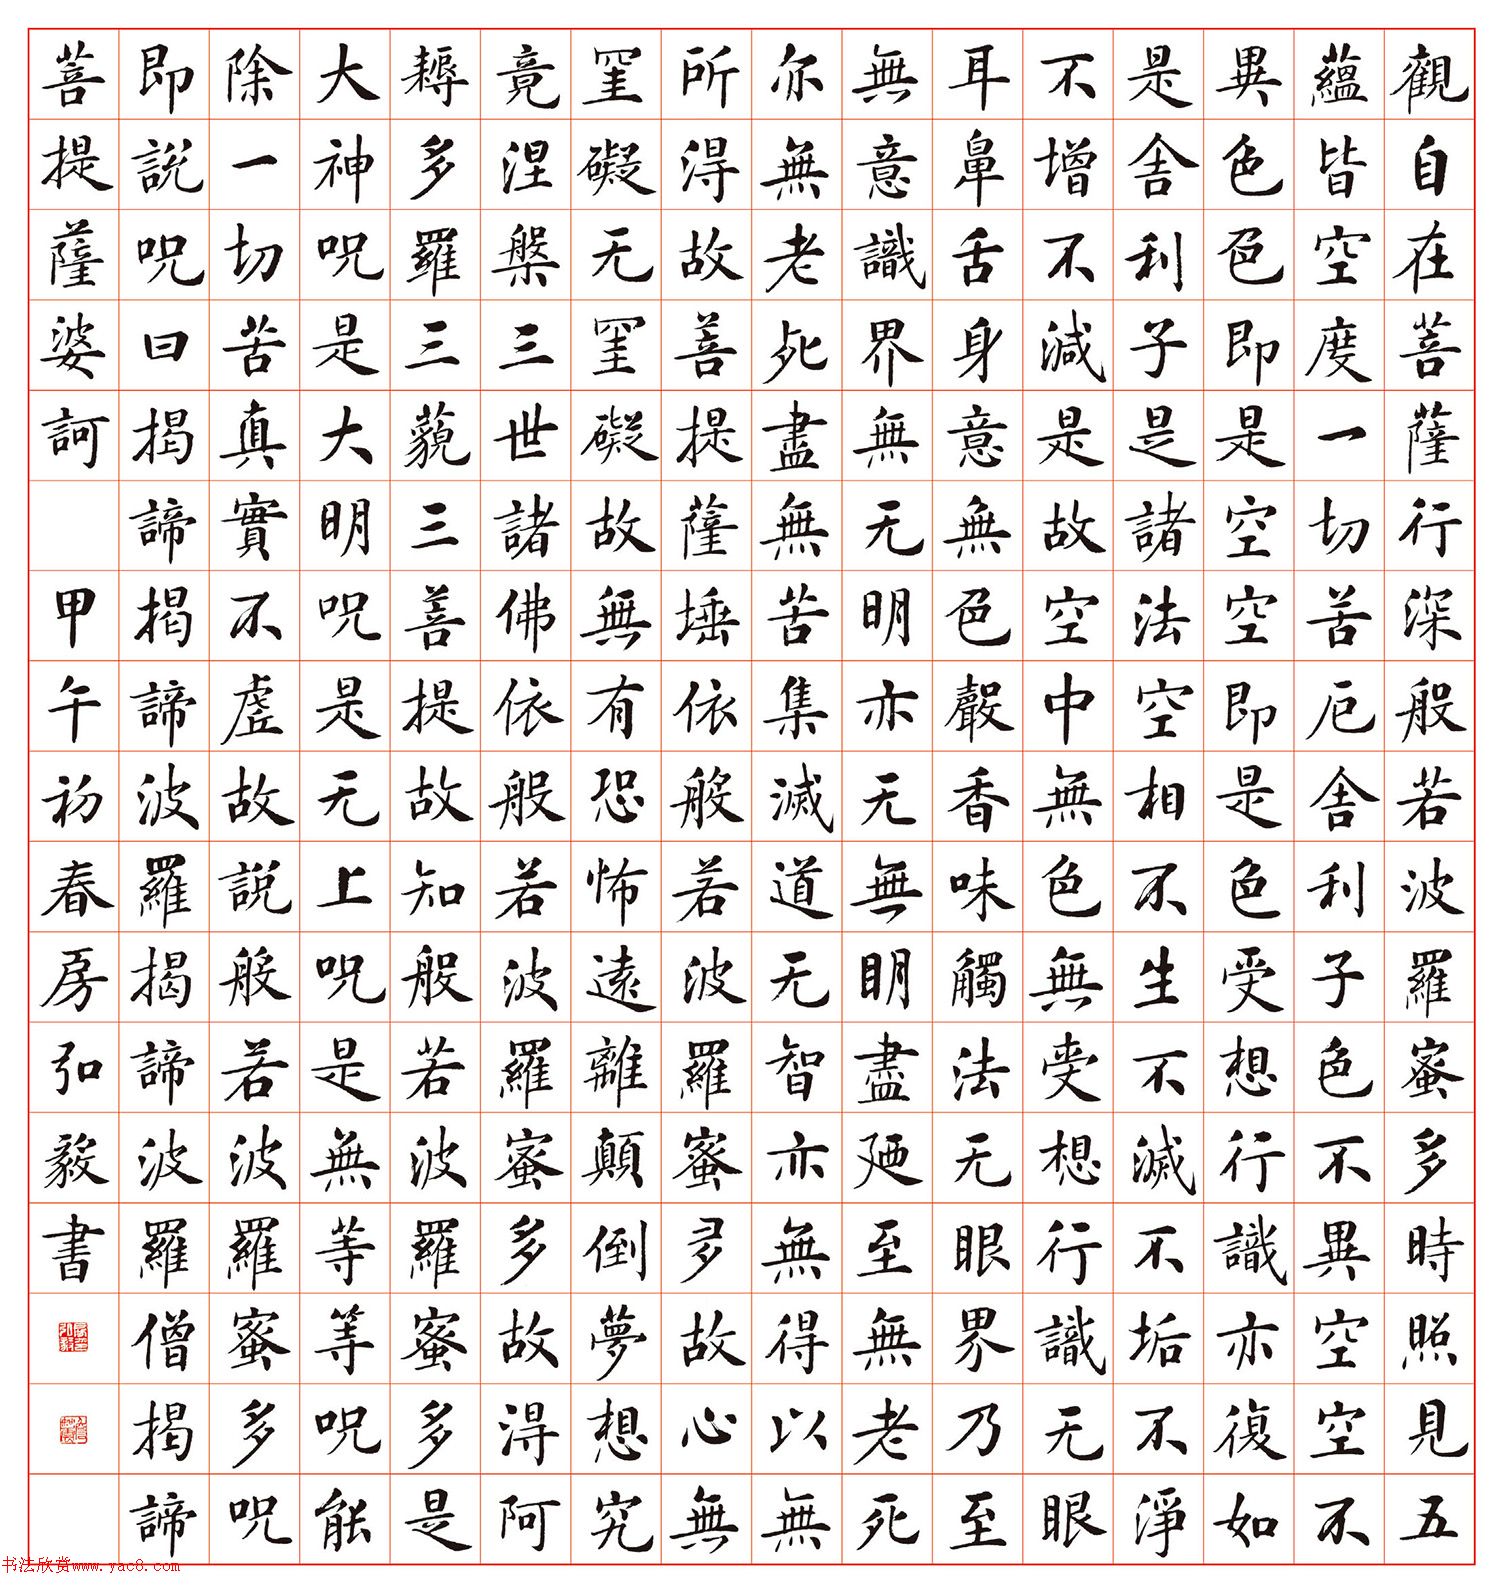 觀自在菩薩行深般若波羅蜜多時照見五
蘊皆空度一切苦厄舍利子色不異空空不
異色色即是空空即是色受想行識亦復如
是舍利子是諸法空相不生不滅不垢不淨
不增不減是故空中無色無受想行識无眼
耳鼻舌身意無色聲香味觸法无眼界乃至
無意識界無无明亦无無明盡廼至無老死
亦無老死盡無苦集滅道无智亦無得以無
所得故菩提薩埵依般若波羅蜜多故心無
罣礙无罣礙故無有恐怖遠離顛倒夢想究
竟涅槃三世諸佛依般若波羅蜜多故得阿
耨多羅三藐三菩提故知般若波羅蜜多是
大神呪是大明呪是无上呪是無等等呪能
除一切苦真實不虛故說般若波羅蜜多呪
即說呪曰揭諦揭諦波羅揭諦波羅僧揭諦
菩提薩婆訶 甲午初春房弘毅書
书法欣赏www.yac8.com